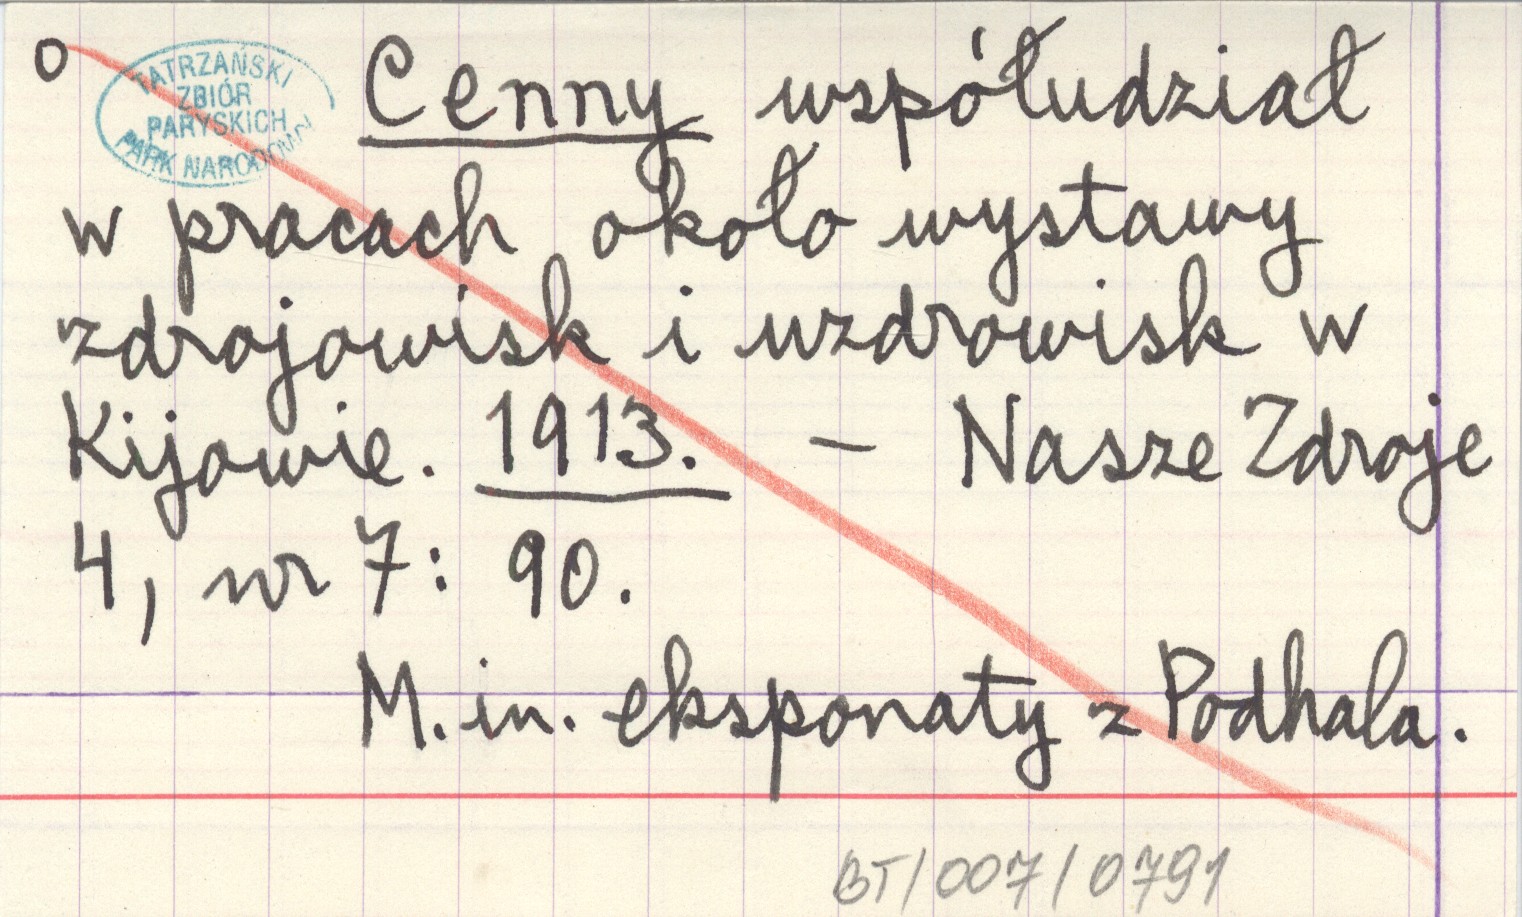 o
TATRZAŃSKI
ZBIÓR
PARYSKICH
PARK NARODOWY
Cenny współudział
w pracach około wystawy
zdrojowisk i uzdrowisk w
Kijowie. 1913. – Nasze Zdroje
4, nr 7: 90.
M. in. eksponaty z Podhala.
BT/007/0791